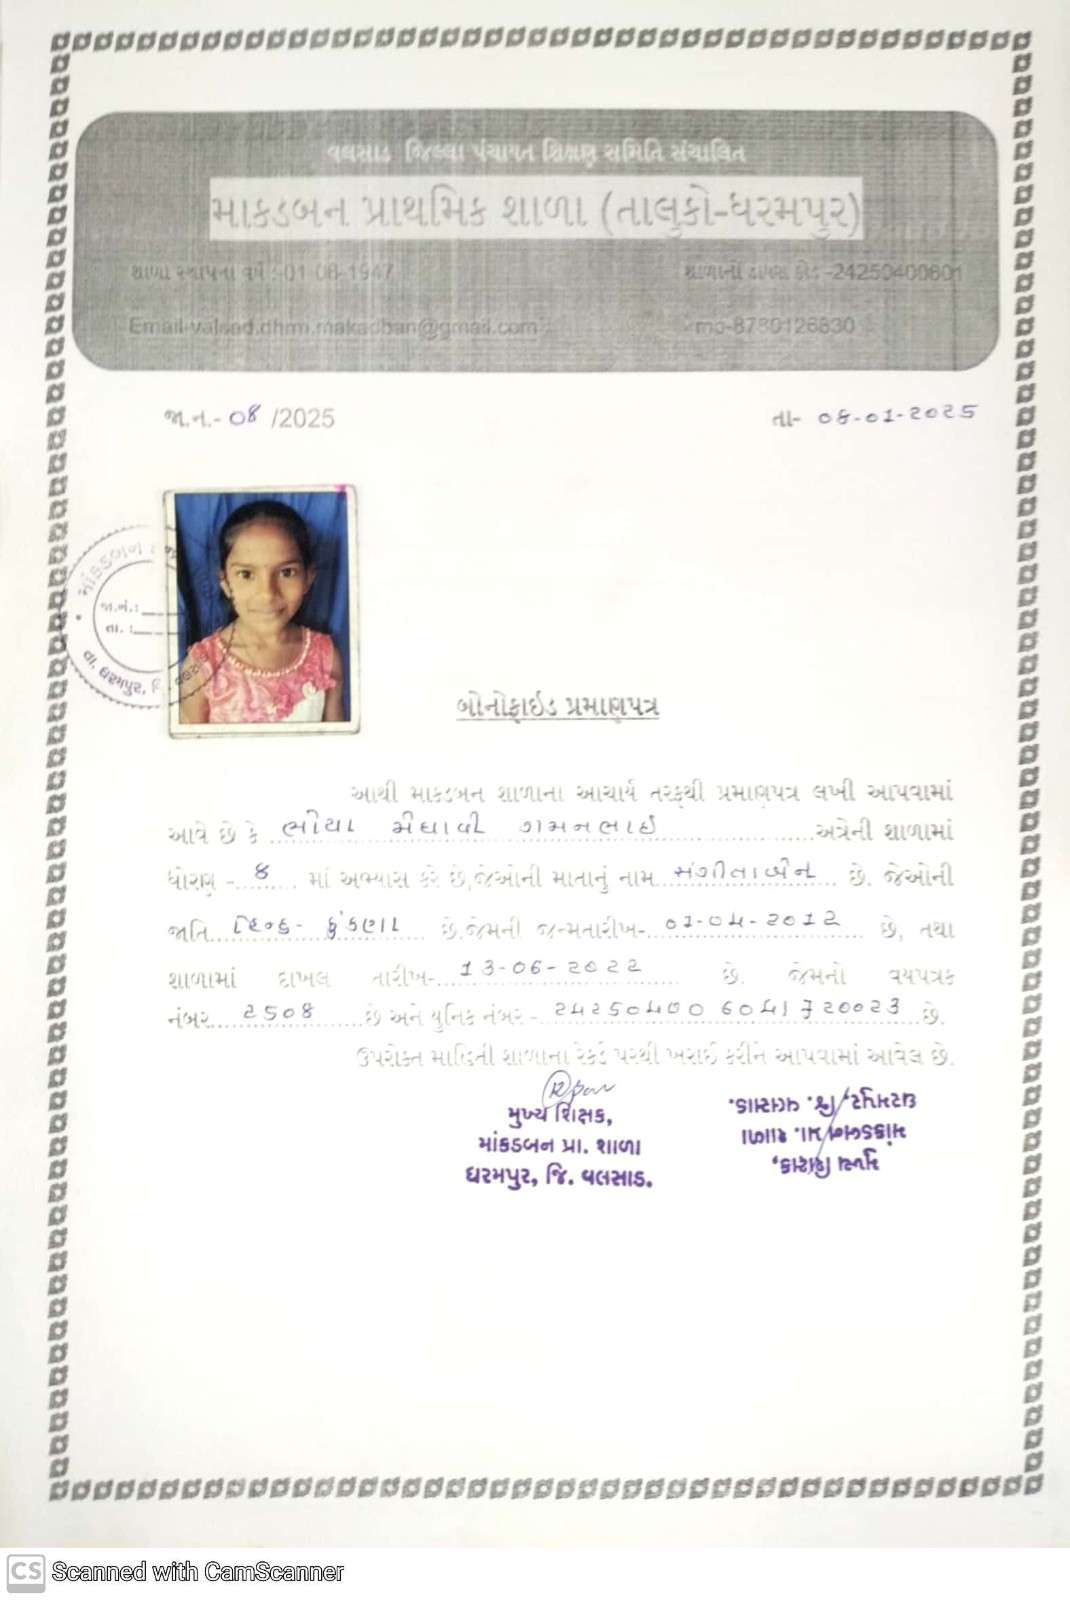 વલસાડ જિલ્લા પંચાયત શિક્ષણ સમિતિ સંચાલિત
માકડબન પ્રાથમિક શાળા (તાલુકો-ધરમપુર)
શાળા સ્થાપના વર્ષ :-01-08-1947 શાળાનો ડાયસ કોડ -24250400601
Email-valsad.dhrm.makadban@gmail.com mo-8780126830
જા.ન.- ૦૪ /2025 તા- ૦૪-૦૧-૨૦૨૫
માંકડબન
જા.નં.:
તા. :
તા. ધરમપુર, જિ. વલસાડ
બોનોફાઇડ પ્રમાણપત્ર
આથી માકડબન શાળાના આચાર્ય તરફથી પ્રમાણપત્ર લખી આપવામાં
આવે છે કે ભોયા મેઘાવી ગમનભાઇ અત્રેની શાળામાં
ધોરણ - ૭ માં અભ્યાસ કરે છે,જેઓની માતાનું નામ સંગીતાબેન છે. જેઓની
જાતિ હિન્દુ- કુંકણા છે.જેમની જન્મતારીખ- ૦૧-૦૫-૨૦૧૨ છે, તથા
શાળામાં દાખલ તારીખ- ૧૩-૦૬-૨૦૨૨ છે. જેમનો વયપત્રક
નંબર ૨૫૦૪ છે અને યુનિક નંબર - છે.
ઉપરોક્ત માહિતી શાળાના રેકર્ડ પરથી ખરાઈ કરીને આપવામાં આવેલ છે.
મુખ્ય શિક્ષક,
માંકડબન પ્રા. શાળા
ધરમપુર, જિ. વલસાડ.
મુખ્ય શિક્ષક,
માંકડબન પ્રા. શાળા
ધરમપુર, જિ. વલસાડ.
CS Scanned with CamScanner